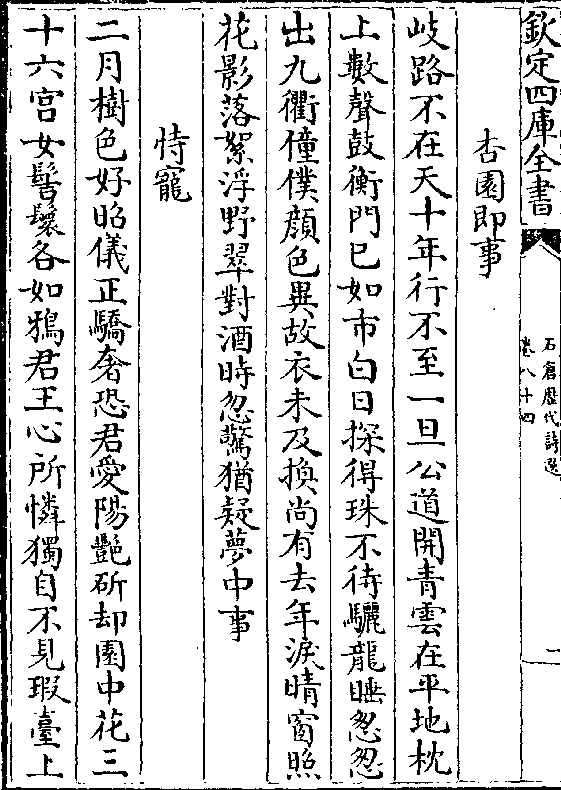 欽定四庫全書
石倉歷代詩選
卷八十四
二
杏園即事
岐路不在天十年行不至一旦公道開青雲在平地枕
上數聲鼓衡門已如市白日探得珠不待驪龍睡忽忽
出九衢僮僕顔色異故衣未及換尚有去年淚晴窗照
花影落絮浮野翠對酒時忽驚猶疑夢中事
恃寵
二月樹色好昭儀正驕奢恐君愛陽艶斫却園中花三
十六宫女髻鬟各如鴉君王心所憐獨自不見瑕臺上